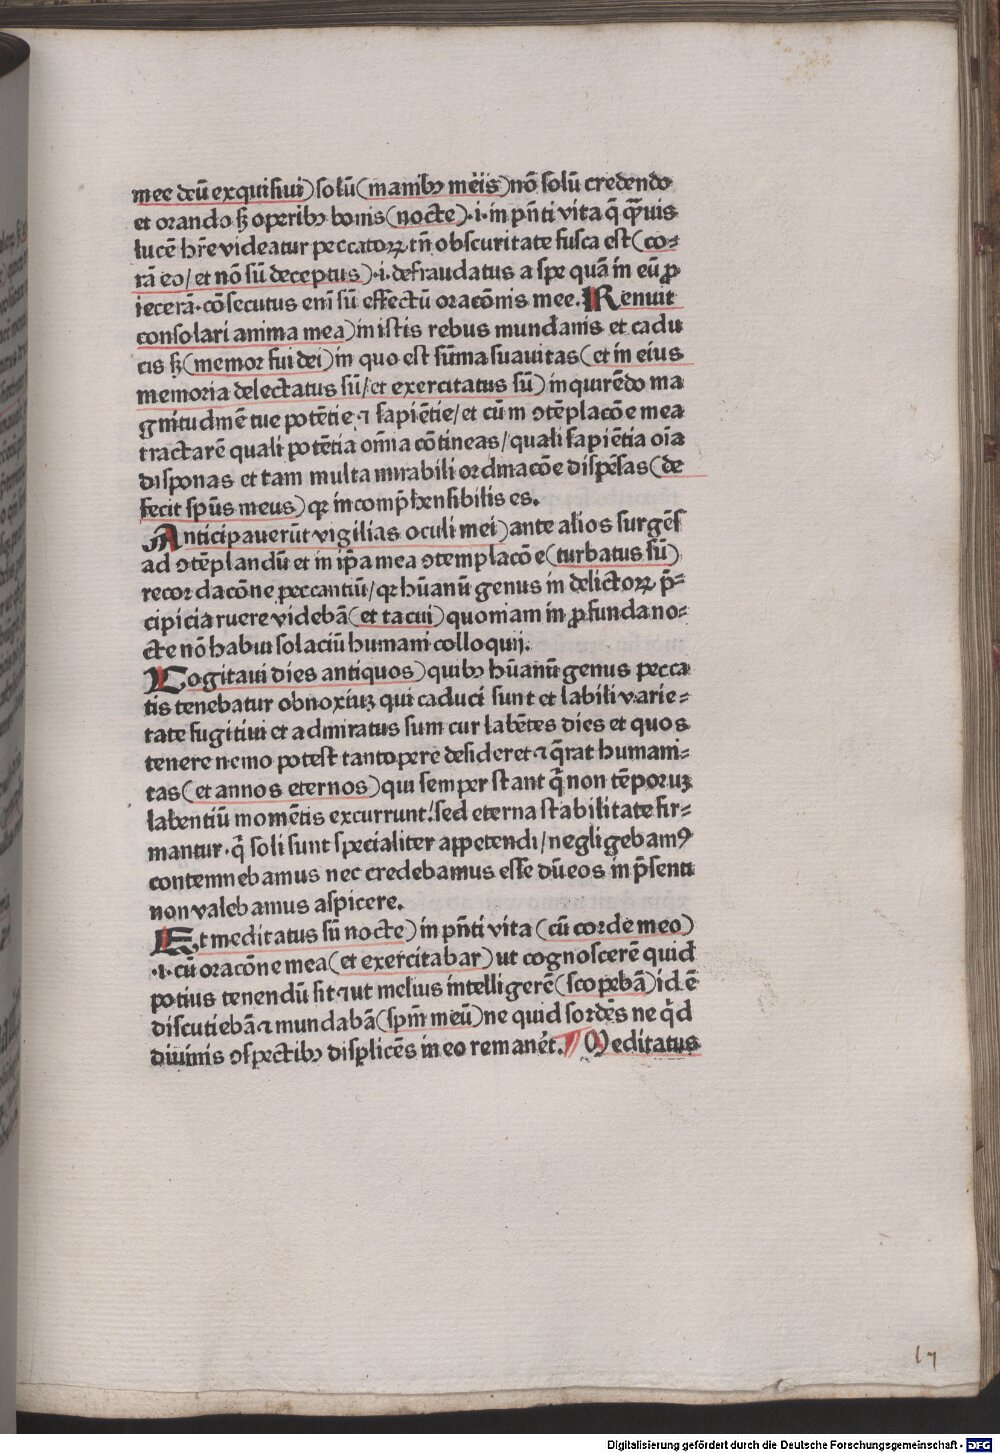 mee deū exquisiui) solū (manibꝫ meis) nō solū credendo
et orando sꝫ operibꝫ bonis (nocte) .i. in pn̄ti vita q̄ q̄uis
lucē hr̄e videatur peccatoꝝ tn̄ obscuritate fusca est (co⸗
rā eo / et nō sū deceptus) .i. defraudatus a spe quā in eū ꝓ
iecerā. cōsecutus eni sū effectū oracōnis mee. Renuit
consolari anima mea) in istis rebus mundanis et cadu
cis sꝫ (memor fui dei) in quo est sūma suauitas (et in eius
memoria delectatus sū / et exercitatus sū) in quirēdo ma
gnitudinē tue potētie ⁊ sapiētie / et cū in ↄtēplacōe mea
tractarē quali potētia om̄ia cōtineas / quali sapiētia oīa
disponas et tam multa mirabili ordinacōe dispēsas (de
fecit sp̄us meus) qꝛ incomp̄hensibilis es.
Anticipauerūt vigilias oculi mei) ante alios surgēs
ad ↄtēplandū et in ip̄a mea ↄtemplacōe (turbatus sū)
recordacōne peccantiū / qꝛ hūanū genus in delictoꝝ p̄⸗
cipicia ruere videbā (et tacui) quoniam in ꝓfunda no⸗
cte nō habui solaciū humani colloquij.
Cogitaui dies antiquos) quibꝫ hūanū genus pecca
tis tenebatur obnoxiuꝫ qui caduci sunt et labili varie⸗
tate fugitiui et admiratus sum cur labētes dies et quos
tenere nemo potest tantopere desideret ⁊ q̄rat humani⸗
tas (et annos eternos) qui semper stant q̄ non tēporuꝫ
labentiū momētis excurrunt: sed eterna stabilitate fir⸗
mantur. q̄ soli sunt specialiter appetendi / negligebamꝰ
contemnebamus nec credebamus esse dū eos in p̄senti
non valebamus aspicere.
Et meditatus sū nocte) in pn̄ti vita (cū corde meo)
.i. cū oracōne mea (et exercitabar) ut cognoscerē quid
potius tenendū sit ⁊ ut melius intelligerē (scopebā) id ē
discutiebā ⁊ mundabā (spm̄ meū) ne quid sordēs ne q̄d
diuinis ↄspectibꝫ displicēs in eo remanēt. Meditatus
17
Digitalisierung gefördert durch die Deutsche Forschungsgemeinschaft - DFG